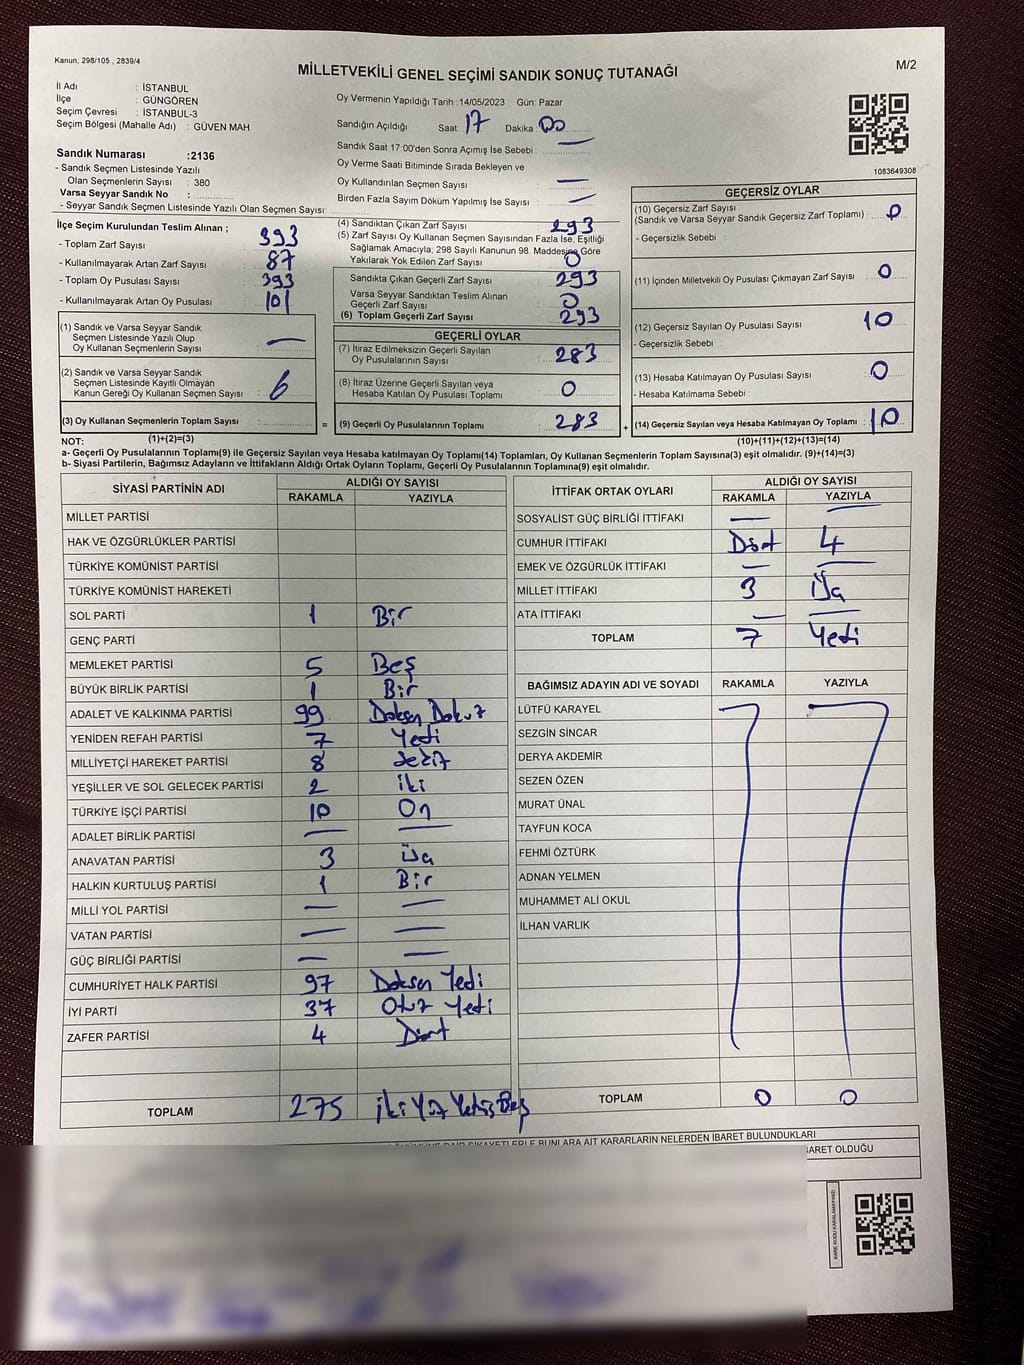 Kanun, 298/105 , 2839/4
M/2
MİLLETVEKİLİ GENEL SEÇİMİ SANDIK SONUÇ TUTANAĞI
İl Adı : İSTANBUL
İlçe : GÜNGÖREN
Seçim Çevresi : İSTANBUL-3
Seçim Bölgesi (Mahalle Adı) : GÜVEN MAH
Sandık Numarası :2136
- Sandık Seçmen Listesinde Yazılı
Olan Seçmenlerin Sayısı : 380
Varsa Seyyar Sandık No :
- Seyyar Sandık Seçmen Listesinde Yazılı Olan Seçmen Sayısı:
Oy Vermenin Yapıldığı Tarih :14/05/2023 Gün: Pazar
Sandığın Açıldığı Saat : 17 Dakika : 00
Sandık Saat 17:00'den Sonra Açımış İse Sebebi : —
Oy Verme Saati Bitiminde Sırada Bekleyen ve
Oy Kullandırılan Seçmen Sayısı : —
Birden Fazla Sayım Döküm Yapılmış İse Sayısı : —
1083649308
İlçe Seçim Kurulundan Teslim Alınan ;
- Toplam Zarf Sayısı : 393
- Kullanılmayarak Artan Zarf Sayısı : 87
- Toplam Oy Pusulası Sayısı : 393
- Kullanılmayarak Artan Oy Pusulası : 101
(1) Sandık ve Varsa Seyyar Sandık
Seçmen Listesinde Yazılı Olup
Oy Kullanan Seçmenlerin Sayısı : —
(2) Sandık ve Varsa Seyyar Sandık
Seçmen Listesinde Kayıtlı Olmayan
Kanun Gereği Oy Kullanan Seçmen Sayısı : 6
(3) Oy Kullanan Seçmenlerin Toplam Sayısı :
(4) Sandıktan Çıkan Zarf Sayısı : 293
(5) Zarf Sayısı Oy Kullanan Seçmen Sayısından Fazla İse, Eşitliği
Sağlamak Amacıyla; 298 Sayılı Kanunun 98. Maddesine Göre
Yakılarak Yok Edilen Zarf Sayısı : 0
Sandıkta Çıkan Geçerli Zarf Sayısı : 293
Varsa Seyyar Sandıktan Teslim Alınan
Geçerli Zarf Sayısı : 0
(6) Toplam Geçerli Zarf Sayısı : 293
GEÇERLİ OYLAR
(7) İtiraz Edilmeksizin Geçerli Sayılan
Oy Pusulalarının Sayısı : 283
(8) İtiraz Üzerine Geçerli Sayılan veya
Hesaba Katılan Oy Pusulası Toplamı : 0
= (9) Geçerli Oy Pusulalarının Toplamı : 283
GEÇERSİZ OYLAR
(10) Geçersiz Zarf Sayısı
(Sandık ve Varsa Seyyar Sandık Geçersiz Zarf Toplamı) : 0
- Geçersizlik Sebebi :
(11) İçinden Milletvekili Oy Pusulası Çıkmayan Zarf Sayısı : 0
(12) Geçersiz Sayılan Oy Pusulası Sayısı : 10
- Geçersizlik Sebebi :
(13) Hesaba Katılmayan Oy Pusulası Sayısı : 0
- Hesaba Katılmama Sebebi :
+ (14) Geçersiz Sayılan veya Hesaba Katılmayan Oy Toplamı : 10
NOT: (1)+(2)=(3) (10)+(11)+(12)+(13)=(14)
a- Geçerli Oy Pusulalarının Toplamı(9) ile Geçersiz Sayılan veya Hesaba Katılmayan Oy Toplamı(14) Toplamları, Oy Kullanan Seçmenlerin Toplam Sayısına(3) eşit olmalıdır. (9)+(14)=(3)
b- Siyasi Partilerin, Bağımsız Adayların ve İttifakların Aldığı Ortak Oyların Toplamı, Geçerli Oy Pusulalarının Toplamına(9) eşit olmalıdır.
SİYASİ PARTİNİN ADI ALDIĞI OY SAYISI
RAKAMLA YAZIYLA
MİLLET PARTİSİ
HAK VE ÖZGÜRLÜKLER PARTİSİ
TÜRKİYE KOMÜNİST PARTİSİ
TÜRKİYE KOMÜNİST HAREKETİ
SOL PARTİ 1 Bir
GENÇ PARTİ
MEMLEKET PARTİSİ 5 Beş
BÜYÜK BİRLİK PARTİSİ 1 Bir
ADALET VE KALKINMA PARTİSİ 99 Doksan Dokuz
YENİDEN REFAH PARTİSİ 7 Yedi
MİLLİYETÇİ HAREKET PARTİSİ 8 Sekiz
YEŞİLLER VE SOL GELECEK PARTİSİ 2 iki
TÜRKİYE İŞÇİ PARTİSİ 10 On
ADALET BİRLİK PARTİSİ — —
ANAVATAN PARTİSİ 3 Üç
HALKIN KURTULUŞ PARTİSİ 1 Bir
MİLLİ YOL PARTİSİ — —
VATAN PARTİSİ — —
GÜÇ BİRLİĞİ PARTİSİ — —
CUMHURİYET HALK PARTİSİ 97 Doksan Yedi
İYİ PARTİ 37 Otuz Yedi
ZAFER PARTİSİ 4 Dört
TOPLAM 275 İki Yüz Yetmiş Beş
İTTİFAK ORTAK OYLARI ALDIĞI OY SAYISI
RAKAMLA YAZIYLA
SOSYALİST GÜÇ BİRLİĞİ İTTİFAKI — —
CUMHUR İTTİFAKI Dört 4
EMEK VE ÖZGÜRLÜK İTTİFAKI — —
MİLLET İTTİFAKI 3 Üç
ATA İTTİFAKI — —
TOPLAM 7 Yedi
BAĞIMSIZ ADAYIN ADI VE SOYADI RAKAMLA YAZIYLA
LÜTFÜ KARAYEL
SEZGİN SİNCAR
DERYA AKDEMİR
SEZEN ÖZEN
MURAT ÜNAL
TAYFUN KOCA
FEHMİ ÖZTÜRK
ADNAN YELMEN
MUHAMMET ALİ OKUL
İLHAN VARLIK
TOPLAM 0 0
ŞİKAYETLERLE BUNLARA AİT KARARLARIN NELERDEN İBARET BULUNDUKLARI
İBARET OLDUĞU
KARE KODU KARALAMAYINIZ!